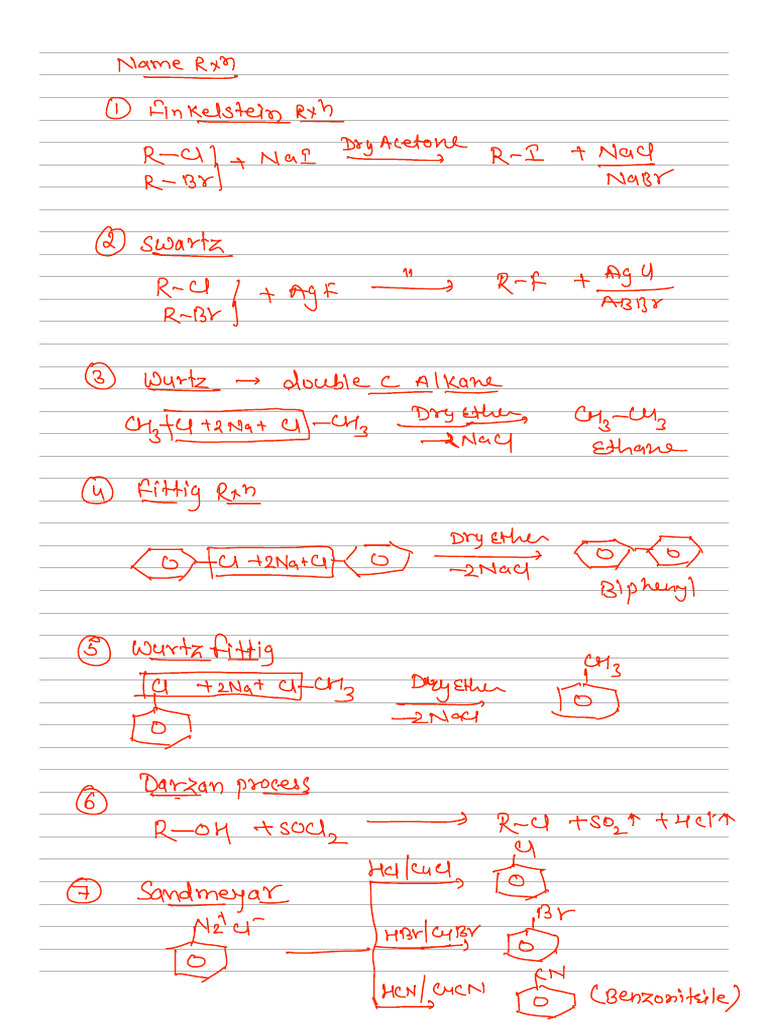 Name Rxn
① Finkelstein Rxn
R-Cl
R-Br } + NaI Dry Acetone → R-I + NaCl
NaBr
② Swartz
R-Cl
R-Br } + AgF " → R-F + AgCl
ABBr
③ Wurtz → double C Alkane
CH3-Cl + 2Na + Cl-CH3 Dry Ether → CH3-CH3
-2NaCl
Ethane
④ Fittig Rxn
Cl + 2Na + Cl Dry Ether →
-2NaCl
Biphenyl
⑤ Wurtz fittig
CH3
Cl + 2Na + Cl-CH3 Dry Ether →
-2NaCl
⑥ Darzan process
R-OH + SOCl2 → R-Cl + SO2↑ + HCl↑
Cl
HCl/CuCl
⑦ Sandmeyar
N2+Cl-
Br
HBr/CuBr
CN
HCN/CuCN
(Benzonitsile)